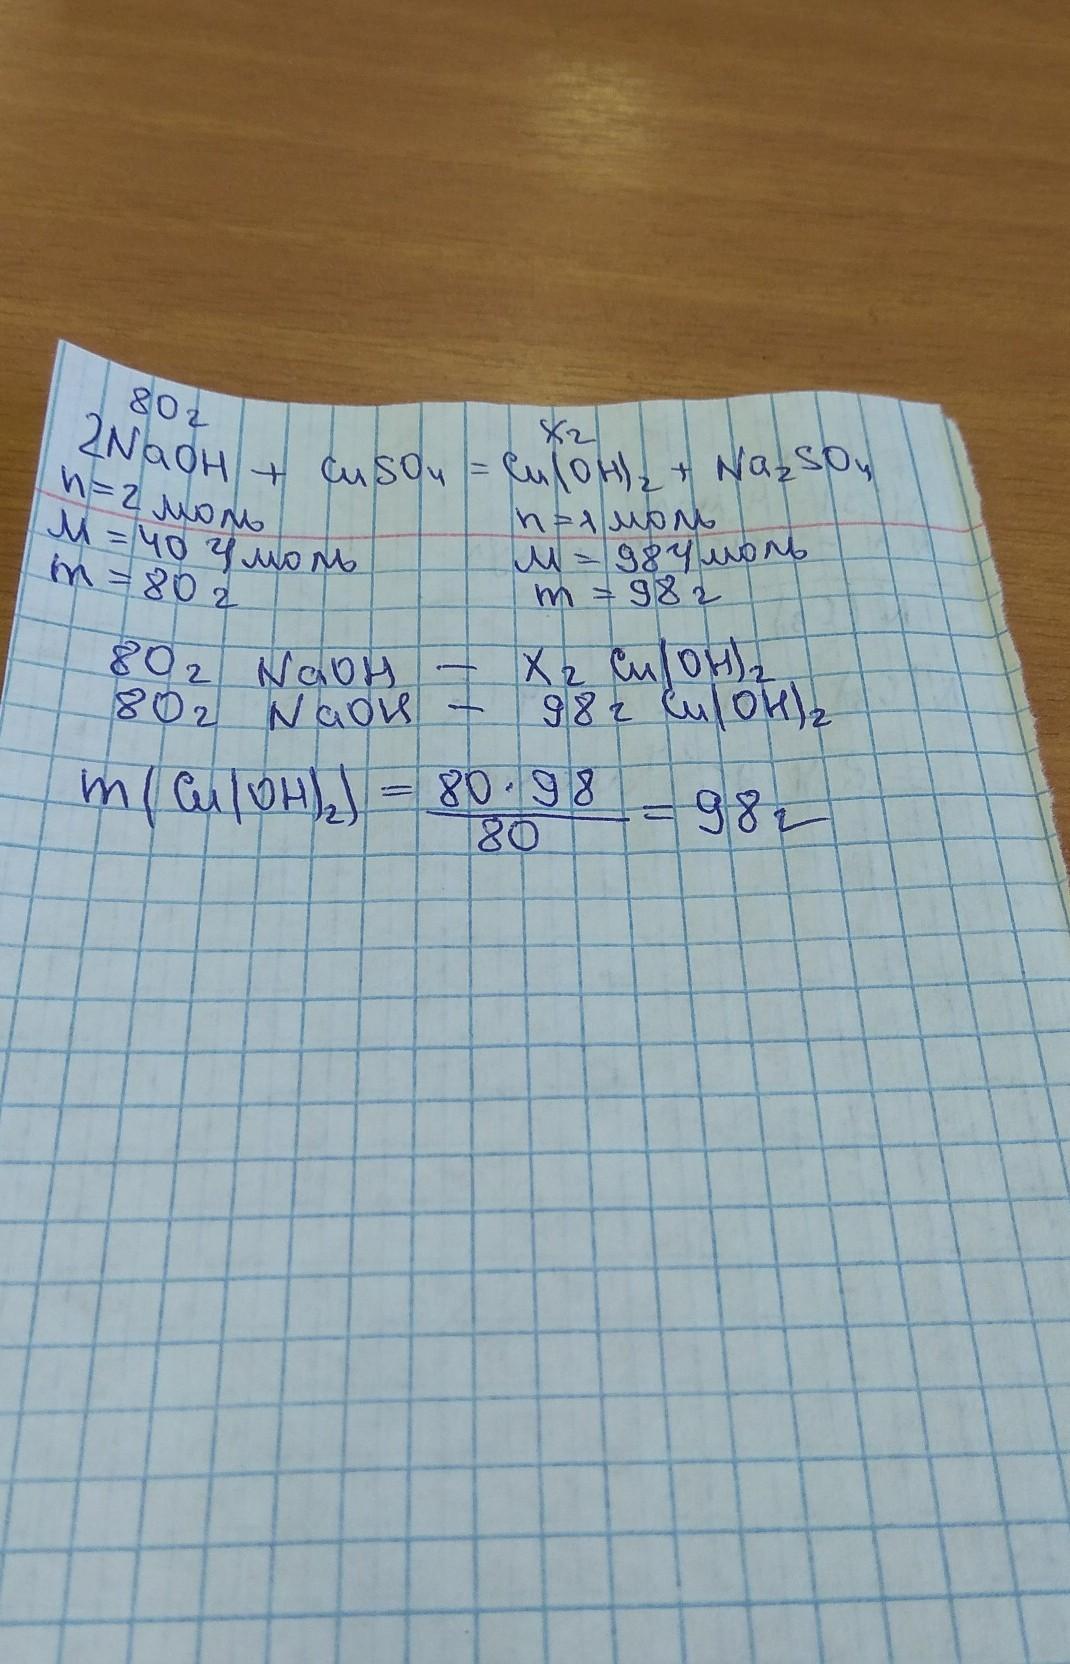 80г
хг
2NaOH + CuSO₄ = Cu(OH)₂ + Na₂SO₄
n=2 моль n=1 моль
M=40 г/моль M=98 г/моль
m=80 г m=98 г
80г NaOH – хг Cu(OH)₂
80г NaOH – 98г Cu(OH)₂
m(Cu(OH)₂) = 80·98/80 = 98г